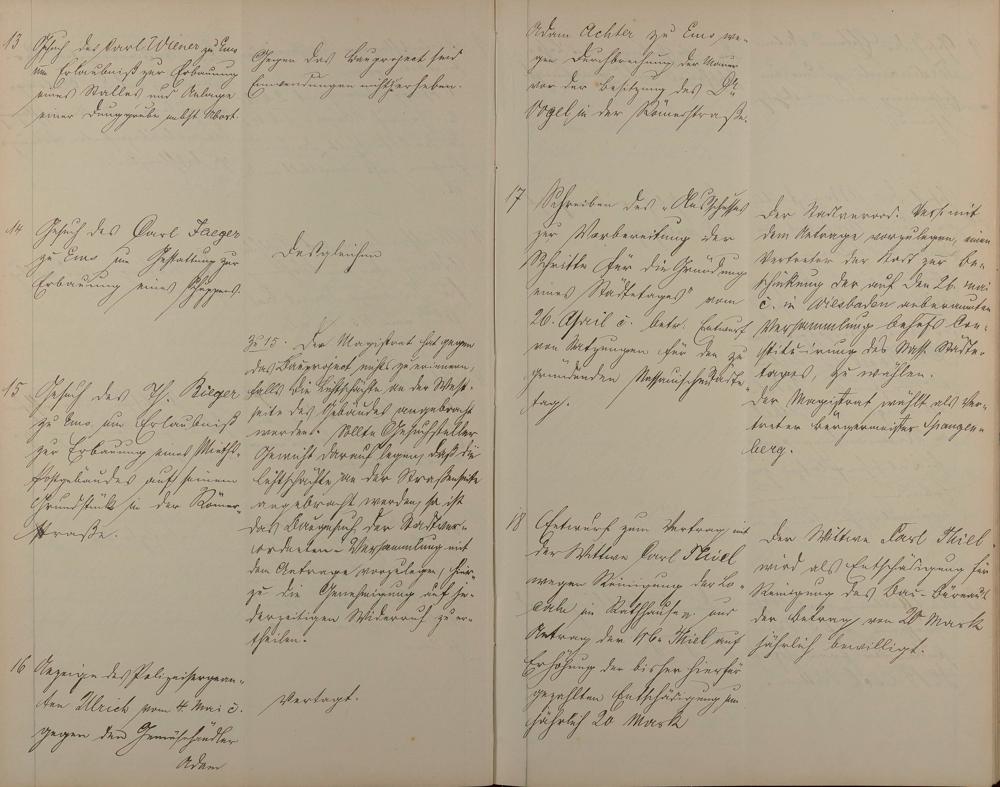 13
Gesuch des Carl Wiener zu Ems
um Erlaubniß zur Erbauung
eines Stalles und Anlage
einer Dunggrube nebst Abort.
Gegen das Bauproject sind
Einwendungen nicht zu erheben.
14
Gesuch des Carl Jaeger
zu Ems um Gestattung zur
Erbauung eines Schuppens.
Desgleichen
15
Gesuch des Th. Rieger
zu Ems um Erlaubniß
zur Erbauung eines Mieth-
Postgebäudes auf seinem
Grundstück in der Römer-
straße.
zu 15. Der Magistrat hat gegen
das Bauproject nichts zu erinnern,
falls die Luftschächte an der West-
seite des Gebäudes angebracht
werden. Sollte Gesuchsteller
Gewicht darauf legen, daß die
Luftschächte an der Straßenseite
angebracht werden, so ist
das Baugesuch der Stadtver-
ordneten-Versammlung mit
dem Antrage vorzulegen, hier-
zu die Genehmigung auf je-
derzeitigen Widerruf zu er-
theilen.
16
Anzeige des Polizeisergean-
ten Ulrich vom 4. Mai c.
gegen den Gemüsehändler
Adam
Vertagt.
Adam Achter zu Ems we-
gen Durchbrechung der Mauer
vor der Besitzung des Dr.
Vogel in der Römerstraße.
17
Schreiben des "Ausschusses
zur Vorbereitung der
Schritte für die Gründung
eines Städtetages" vom
26. April c. betr. Entwurf
von Satzungen für den zu
gründenden Nassauischen Städte-
tag.
Der Stadtverord. Vers. mit
dem Antrage vorzulegen, einen
Vertreter der Stadt zur Be-
schickung der auf den 26. Mai
c. in Wiesbaden anberaumten
Versammlung behufs Con-
stituirung des Nass. Städte-
tages, zu wählen.
Der Magistrat wählt als Ver-
treter Bürgermeister Spangen-
berg.
18
Entwurf zum Vertrag mit
der Wittwe Carl Thiel
wegen Reinigung der Lo-
cale im Rathhause, und
Antrag der Wwe Thiel auf
Erhöhung der bisher hierfür
gezahlten Entschädigung um
jährlich 20 Mark
Der Wittwe Carl Thiel
wird als Entschädigung für
Reinigung des Bau-Büreaus
der Betrag von 20 Mark
jährlich bewilligt.